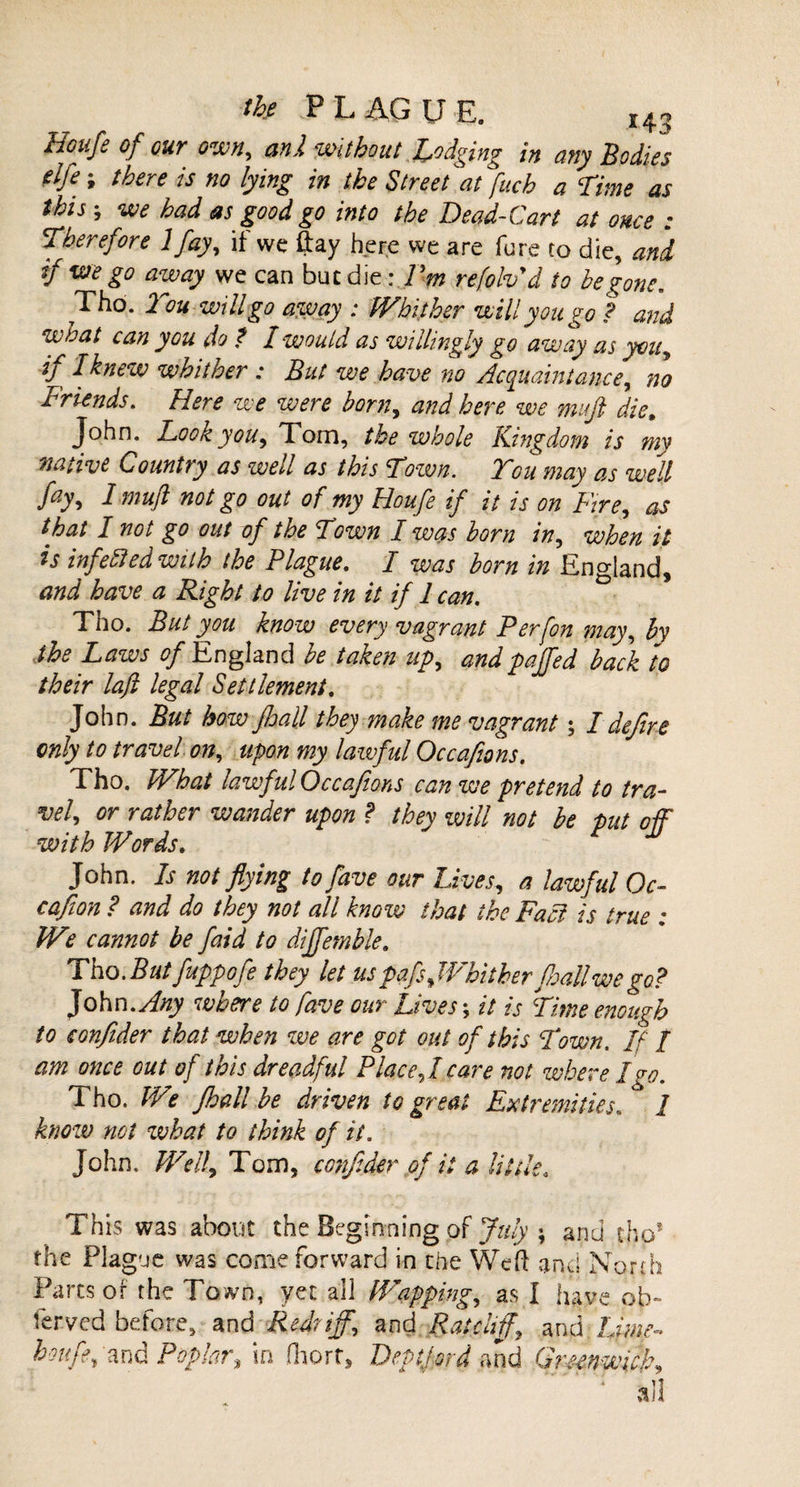 the PLAGUE. 143
Houſe of our own, and without Lodging in any Bodies
elſe; there is no lying in the Street at ſuch a Time as
this; we had as good go into the Dead-Cart at once:
Therefore I ſay, if we ſtay here we are ſure to die, and
if we go away we can but die: I'm reſolv'd to be gone.
Tho. You will go away: Whither will you go? and
what can you do? I would as willingly go away as you,
if I knew whither: But we have no Acquaintance, no
Friends. Here we were born, and here we muſt die.
John. Look you, Tom, the whole Kingdom is my
native Country as well as this Town. You may as well
ſay, I muſt not go out of my Houſe if it is on Fire, as
that I not go out of the Town I was born in, when it
is infected with the Plague. I was born in England,
and have a Right to live in it if I can.
Tho. But you know every vagrant Perſon may, by
the Laws of England be taken up, and paſſed back to
their laſt legal Settlement.
John. But how ſhall they make me vagrant; I deſire
only to travel on, upon my lawful Occaſions.
Tho. What lawful Occaſions can we pretend to tra-
vel, or rather wander upon? they will not be put off
with Words.
John. Is not flying to ſave our Lives, a lawful Oc-
caſion? and do they not all know that the Fact is true:
We cannot be ſaid to diſſemble.
Tho. But ſuppoſe they let us paſs, Whither ſhall we go?
John. Any where to ſave our Lives; it is Time enough
to conſider that when we are got out of this Town. If I
am once out of this dreadful Place, I care not where I go.
Tho. We ſhall be driven to great Extremities. I
know not what to think of it.
John. Well, Tom, conſider of it a little.
This was about the Beginning of July; and tho'
the Plague was come forward in the Weſt and North
Parts of the Town, yet all Wapping, as I have ob-
ſerved before, and Redriff, and Ratcliff, and Lime-
houſe, and Poplar, in ſhort, Deptford and Greenwich,
all